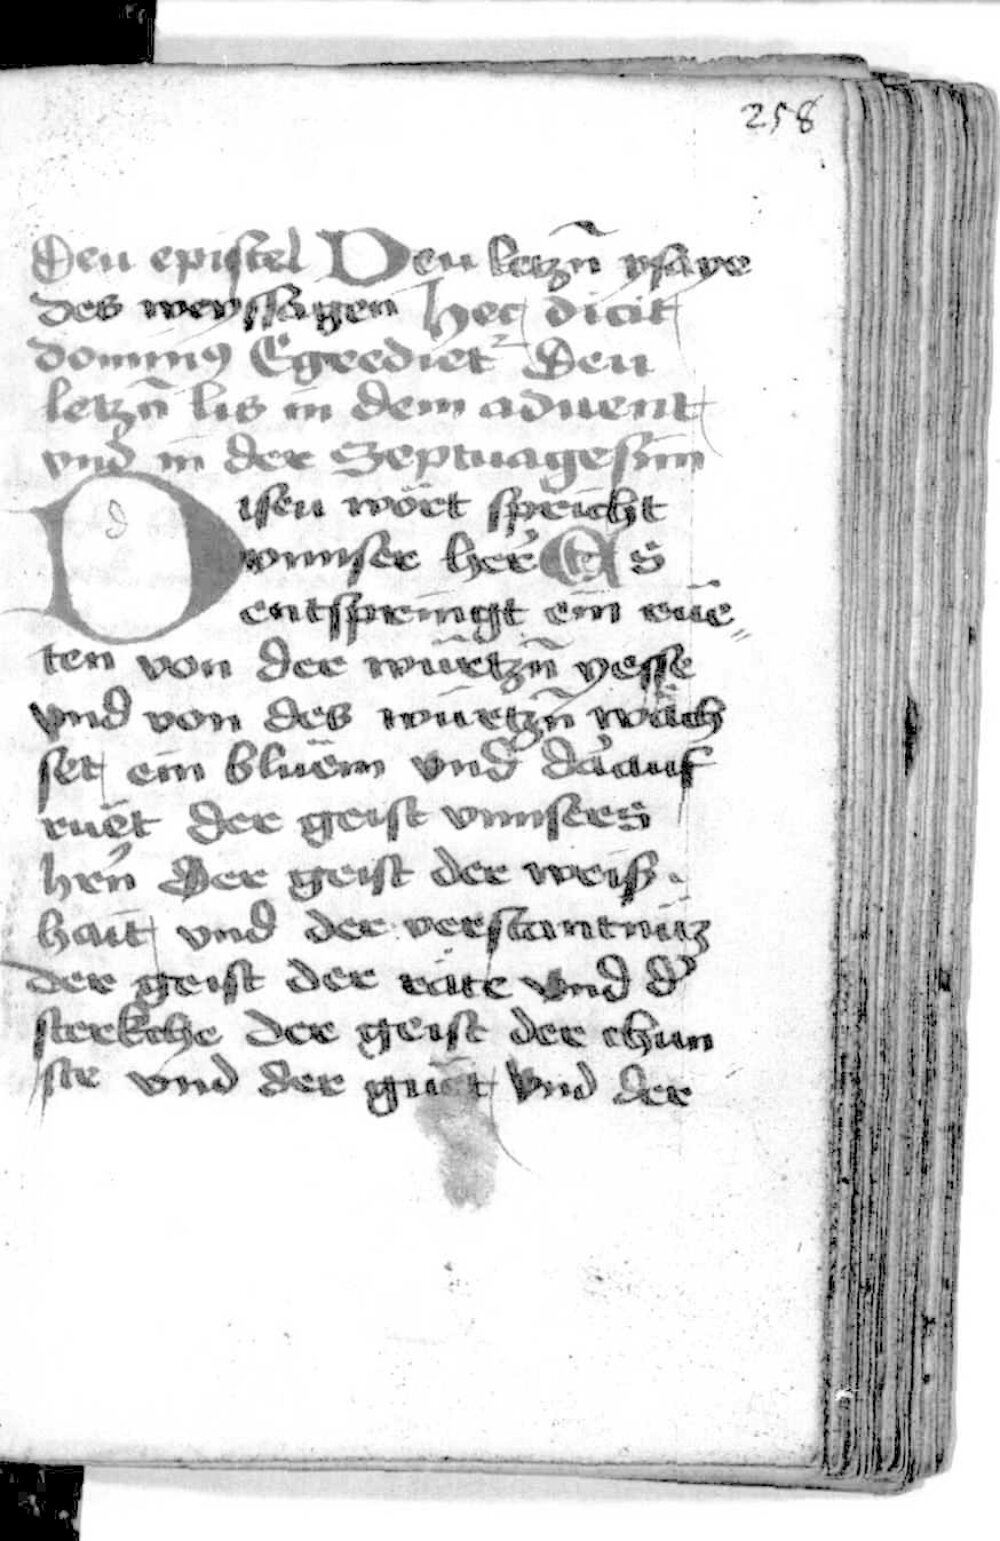 258
Den epistel Den letzn̄ ysaye
des weyssagen hec dicit
dominus Egredietr Den
letzn̄ lis in dem aduent
vnd in der Septuagesim
Disen wort spricht
vnnser her Es
entspringt ein rue„
ten von der wurtzn̄ yesse
vnd von des wurtzn̄ wäch
set ein bluem vnd darauf
ruet der geist vnnsers
hrn̄ Der geist der weiß„
hait vnd der verstantnuz
der geist der rate vnd dʼ
sterkche der geist der chun
ste vnd der guet vnd der